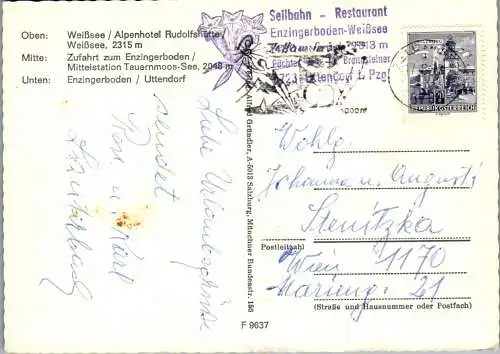 Oben: Weißsee / Alpenhotel Rudolfshütte,
Weißsee, 2315 m
Mitte: Zufahrt zum Enzingerboden /
Mittelstation Tauernmoos-See, 2048 m
Unten: Enzingerboden / Uttendorf
Seilbahn - Restaurant
Enzingerboden-Weißsee
m
Uttendorf i. Pzg.
REPUBLIK ÖSTERREICH
Alfred Gründler, A-5013 Salzburg, Münchner Bundesstr. 150
Liebe Urlaubsgrüße
sendet
Rosa u. Karl
Wohlg.
Johanna und August
Stenitzka
Postleitzahl
Wien 1170
Marieng. 21
(Straße und Hausnummer oder Postfach)
F 9637